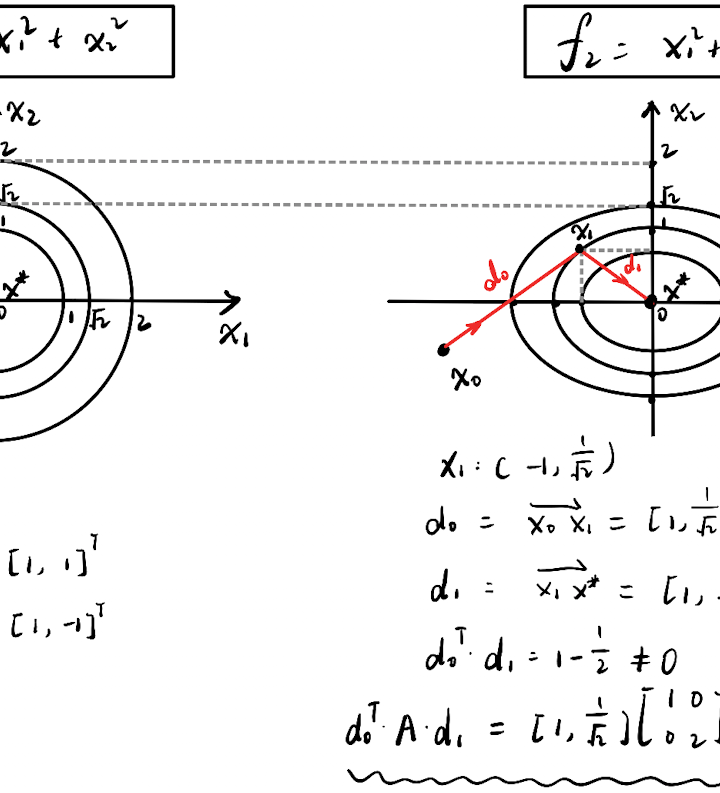 x₁² + x₂²
f₂ = x₁² +
x₂
2
√2
1
x*
0
1
√2
2
x₁
x₂
2
√2
1
x₁
d₀
d₁
x*
0
x₀
x₁: (-1, 1/√2)
d₀ = x₀x₁ = [1, 1/√2
[1, 1]ᵀ
d₁ = x₁x* = [1,
[1, -1]ᵀ
d₀ᵀ · d₁ = 1 - 1/2 ≠ 0
d₀ᵀ · A · d₁ = [1, 1/√2] [1 0
0 2]